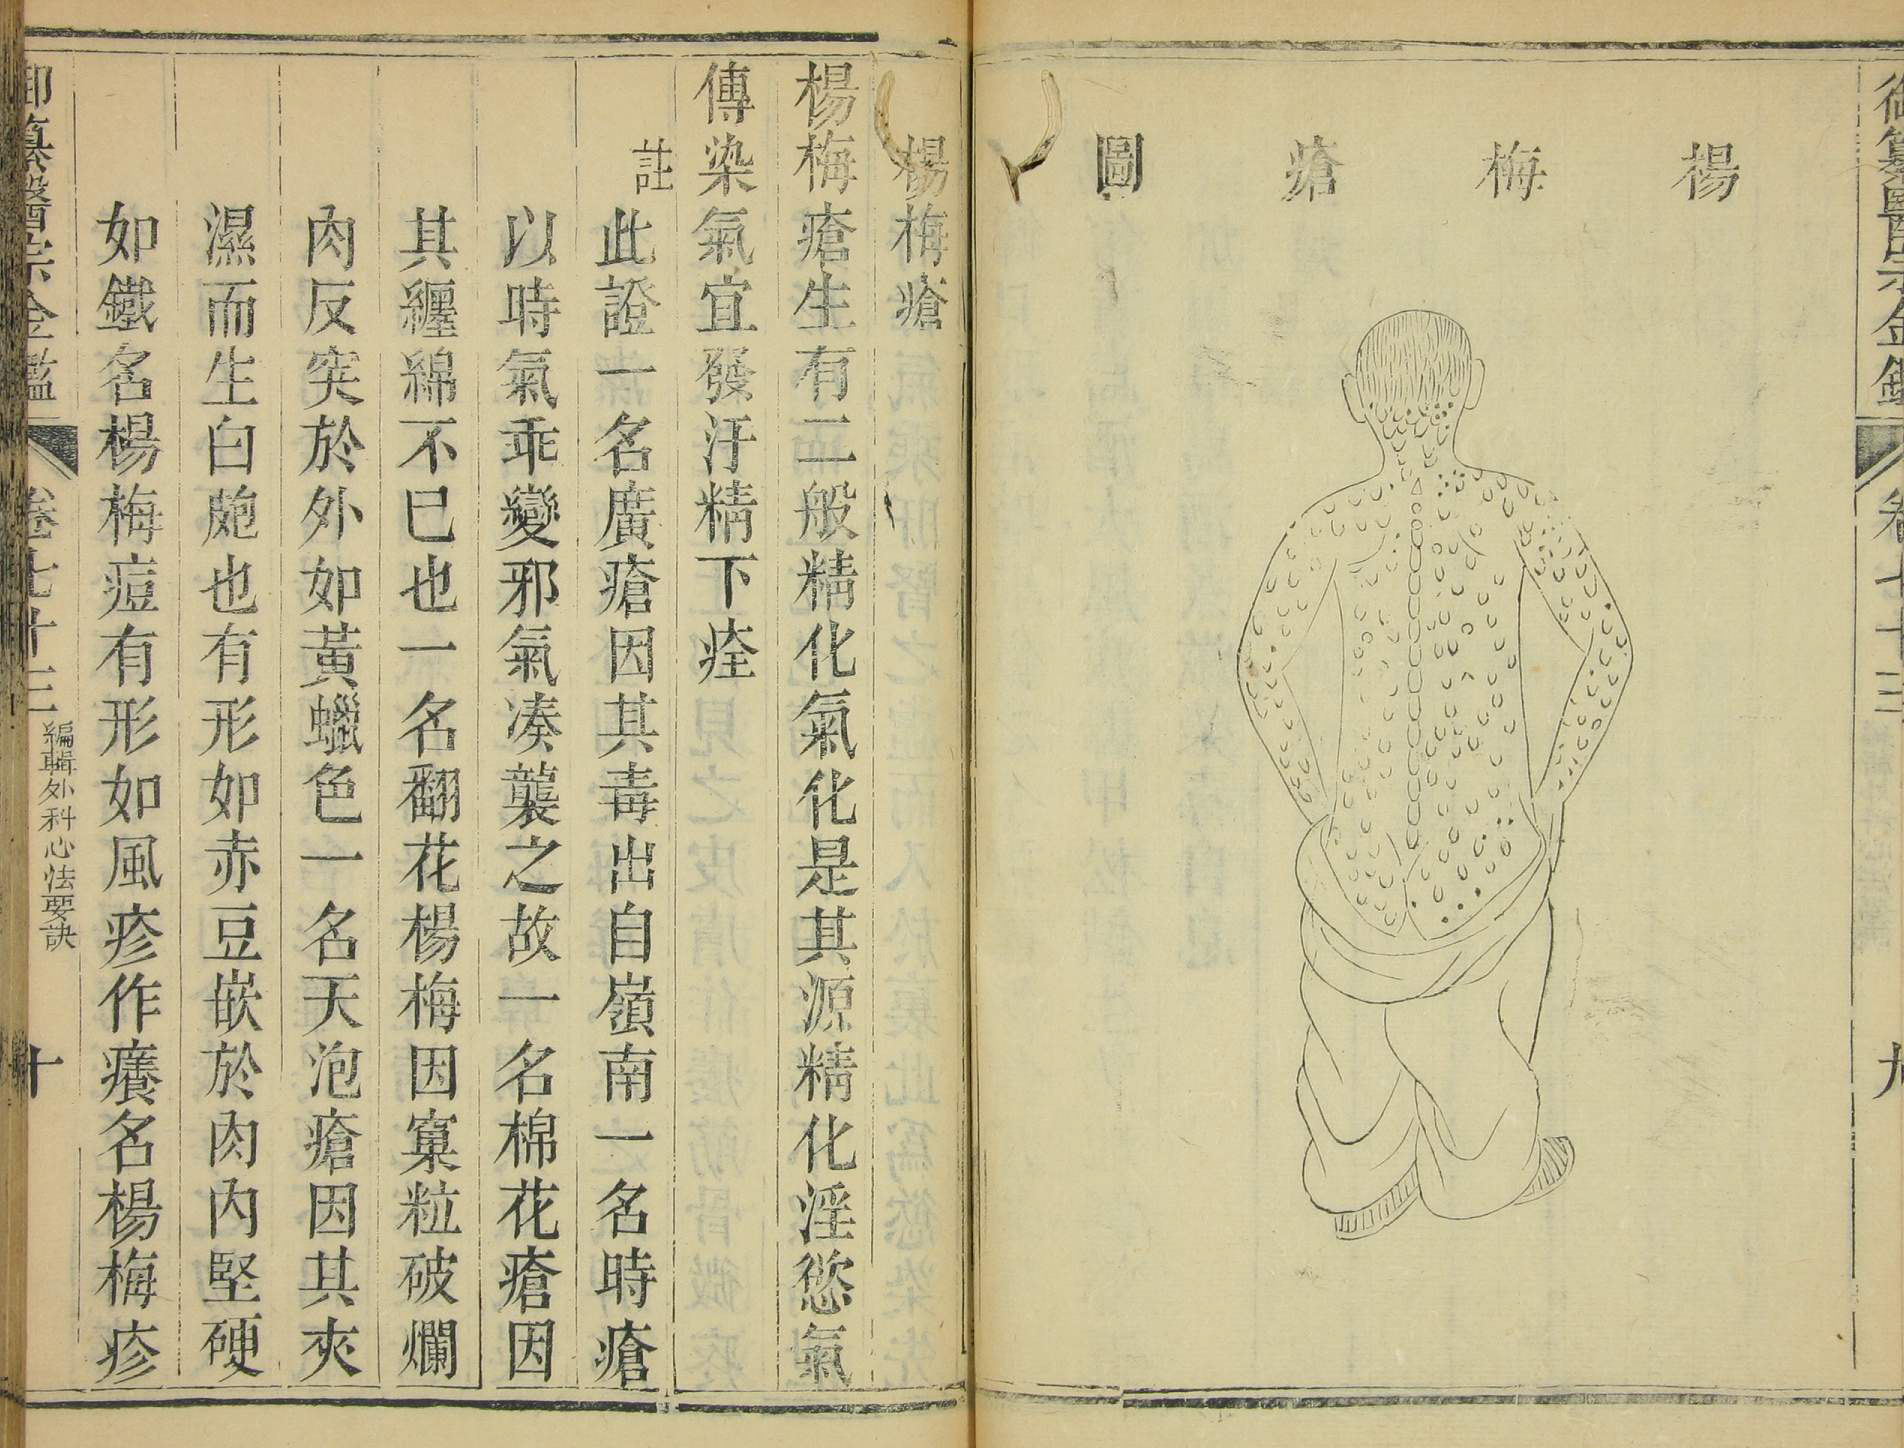 楊梅瘡圖
九
楊梅瘡
楊梅瘡生有二般精化氣化是其源精化淫慾氣
傳染氣宜發汗精下痊
註
此證一名廣瘡因其毒出自嶺南一名時瘡
以時氣乖變邪氣凑襲之故一名棉花瘡因
其纏綿不已也一名翻花楊梅因窠粒破爛
肉反突於外如黃蠟色一名天泡瘡因其夾
濕而生白皰也有形如赤豆嵌於肉內堅硬
如鐵名楊梅痘有形如風疹作癢名楊梅疹
御纂醫宗金鑑
卷七十三
編輯外科心法要訣
十